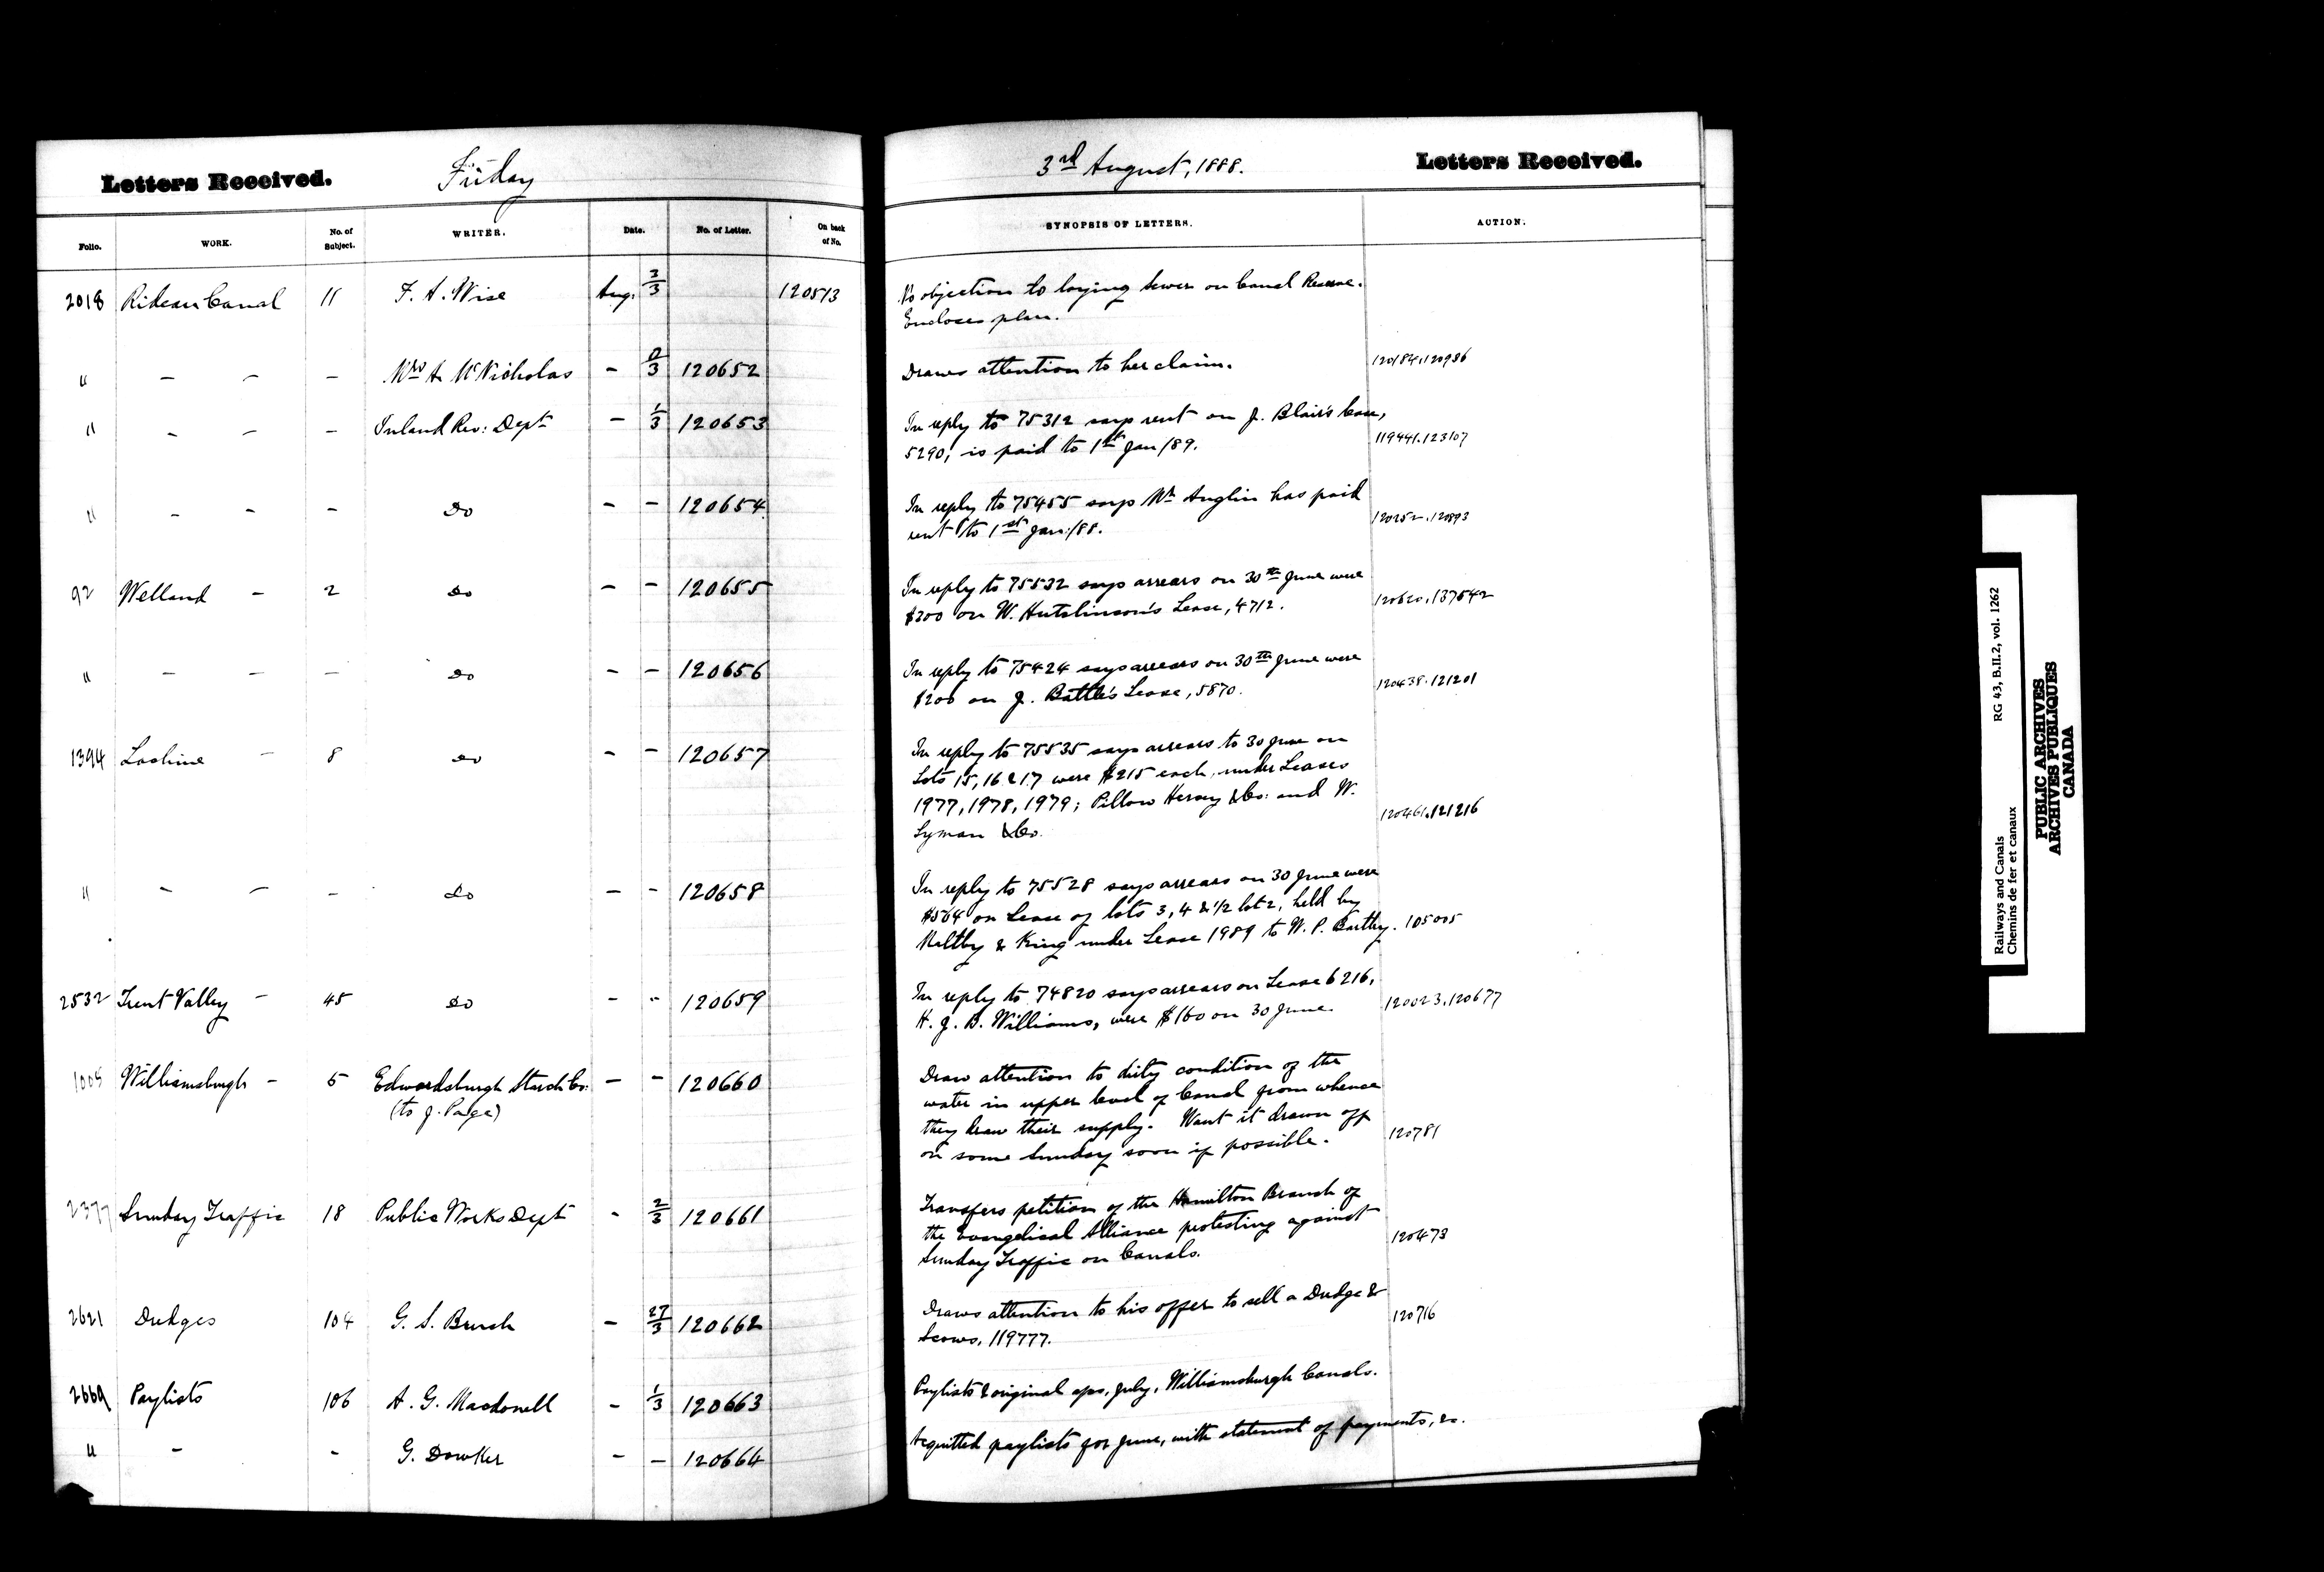 Letters Received. Friday
3rd August, 1888. Letters Received.
Folio. WORK. No. of Subject. WRITER. Date. No. of Letter. On back of No. SYNOPSIS OF LETTERS. ACTION.
2018 Rideau Canal 11 F. A. Wise Aug. 3/3 120513 No objection to laying sewer on Canal Reserve.
Encloses plan.
" - - - Mrs A McNicholas - 2/3 120652 Draws attention to her claim. 120184.120986
" - - - Inland Rev: Dept - 1/3 120653 In reply to 75312 says rent on J. Blair's Case,
5290, is paid to 1st Jan/89. 119441.123107
" - - - Do - - 120654 In reply to 75455 says Mr Anglin has paid
rent to 1st Jan:/88. 120252.120893
92 Welland - 2 Do - - 120655 In reply to 75532 says arrears on 30th June were
$200 on W. Hutchinson's Lease, 4712. 120620.137542
" - - - Do - - 120656 In reply to 75424 says arrears on 30th June were
$200 on J. Battle's Lease, 5870. 120438.121201
1394 Lachine - 8 Do - - 120657 In reply to 75535 says arrears to 30 June on
Lots 15, 16 & 17 were $215 each, under Leases
1977, 1978, 1979; Pillow Hersey & Co: and W.
Lyman & Co. 120461.121216
" - - - Do - - 120658 In reply to 75528 says arrears on 30 June were
$564 on Lease of lots 3, 4 & 1/2 lot 2, held by
Maltby & King under Lease 1989 to W. P. Bartley. 105005
2532 Trent Valley - 45 Do - - 120659 In reply to 74820 says arrears on Lease 6216,
H. J. B. Williams, were $160 on 30 June. 120023.120677
1005 Williamsburgh - 5 Edwardsburgh Starch Co: - - 120660 Draw attention to dirty condition of the
(to J. Page) water in upper level of Canal from whence
they draw their supply. Want it drawn off
on some Sunday soon if possible. 120781
2377 Sunday Traffic 18 Public Works Dept - 2/3 120661 Transfers petition of the Hamilton Branch of
the Evangelical Alliance protesting against
Sunday Traffic on Canals. 120473
2621 Dredges 104 G. S. Burch - 27/3 120662 Draws attention to his offer to sell a Dredge &
Scows, 119777. 120716
2669 Paylists 106 A. G. Macdonell - 1/3 120663 Paylists & original aps, July, Williamsburgh Canals.
" - - G. Dowker - - 120664 Acquitted paylists for June, with statement of payments, &c.
Railways and Canals RG 43, B.II.2, vol. 1262
Chemins de fer et canaux
PUBLIC ARCHIVES
ARCHIVES PUBLIQUES
CANADA